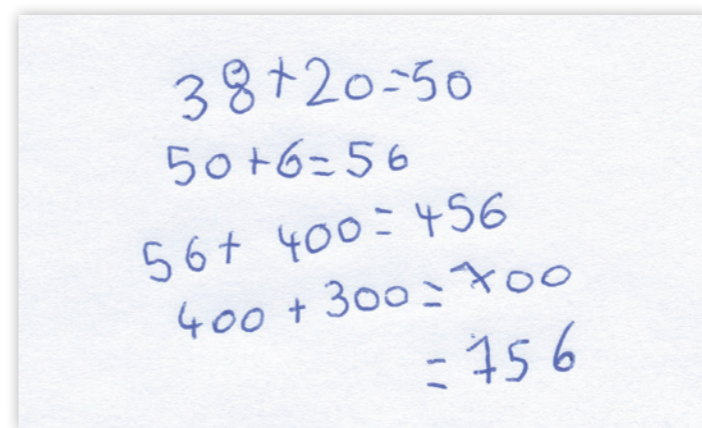 38+20=50
50+6=56
56+ 400=456
400 + 300=700
=756